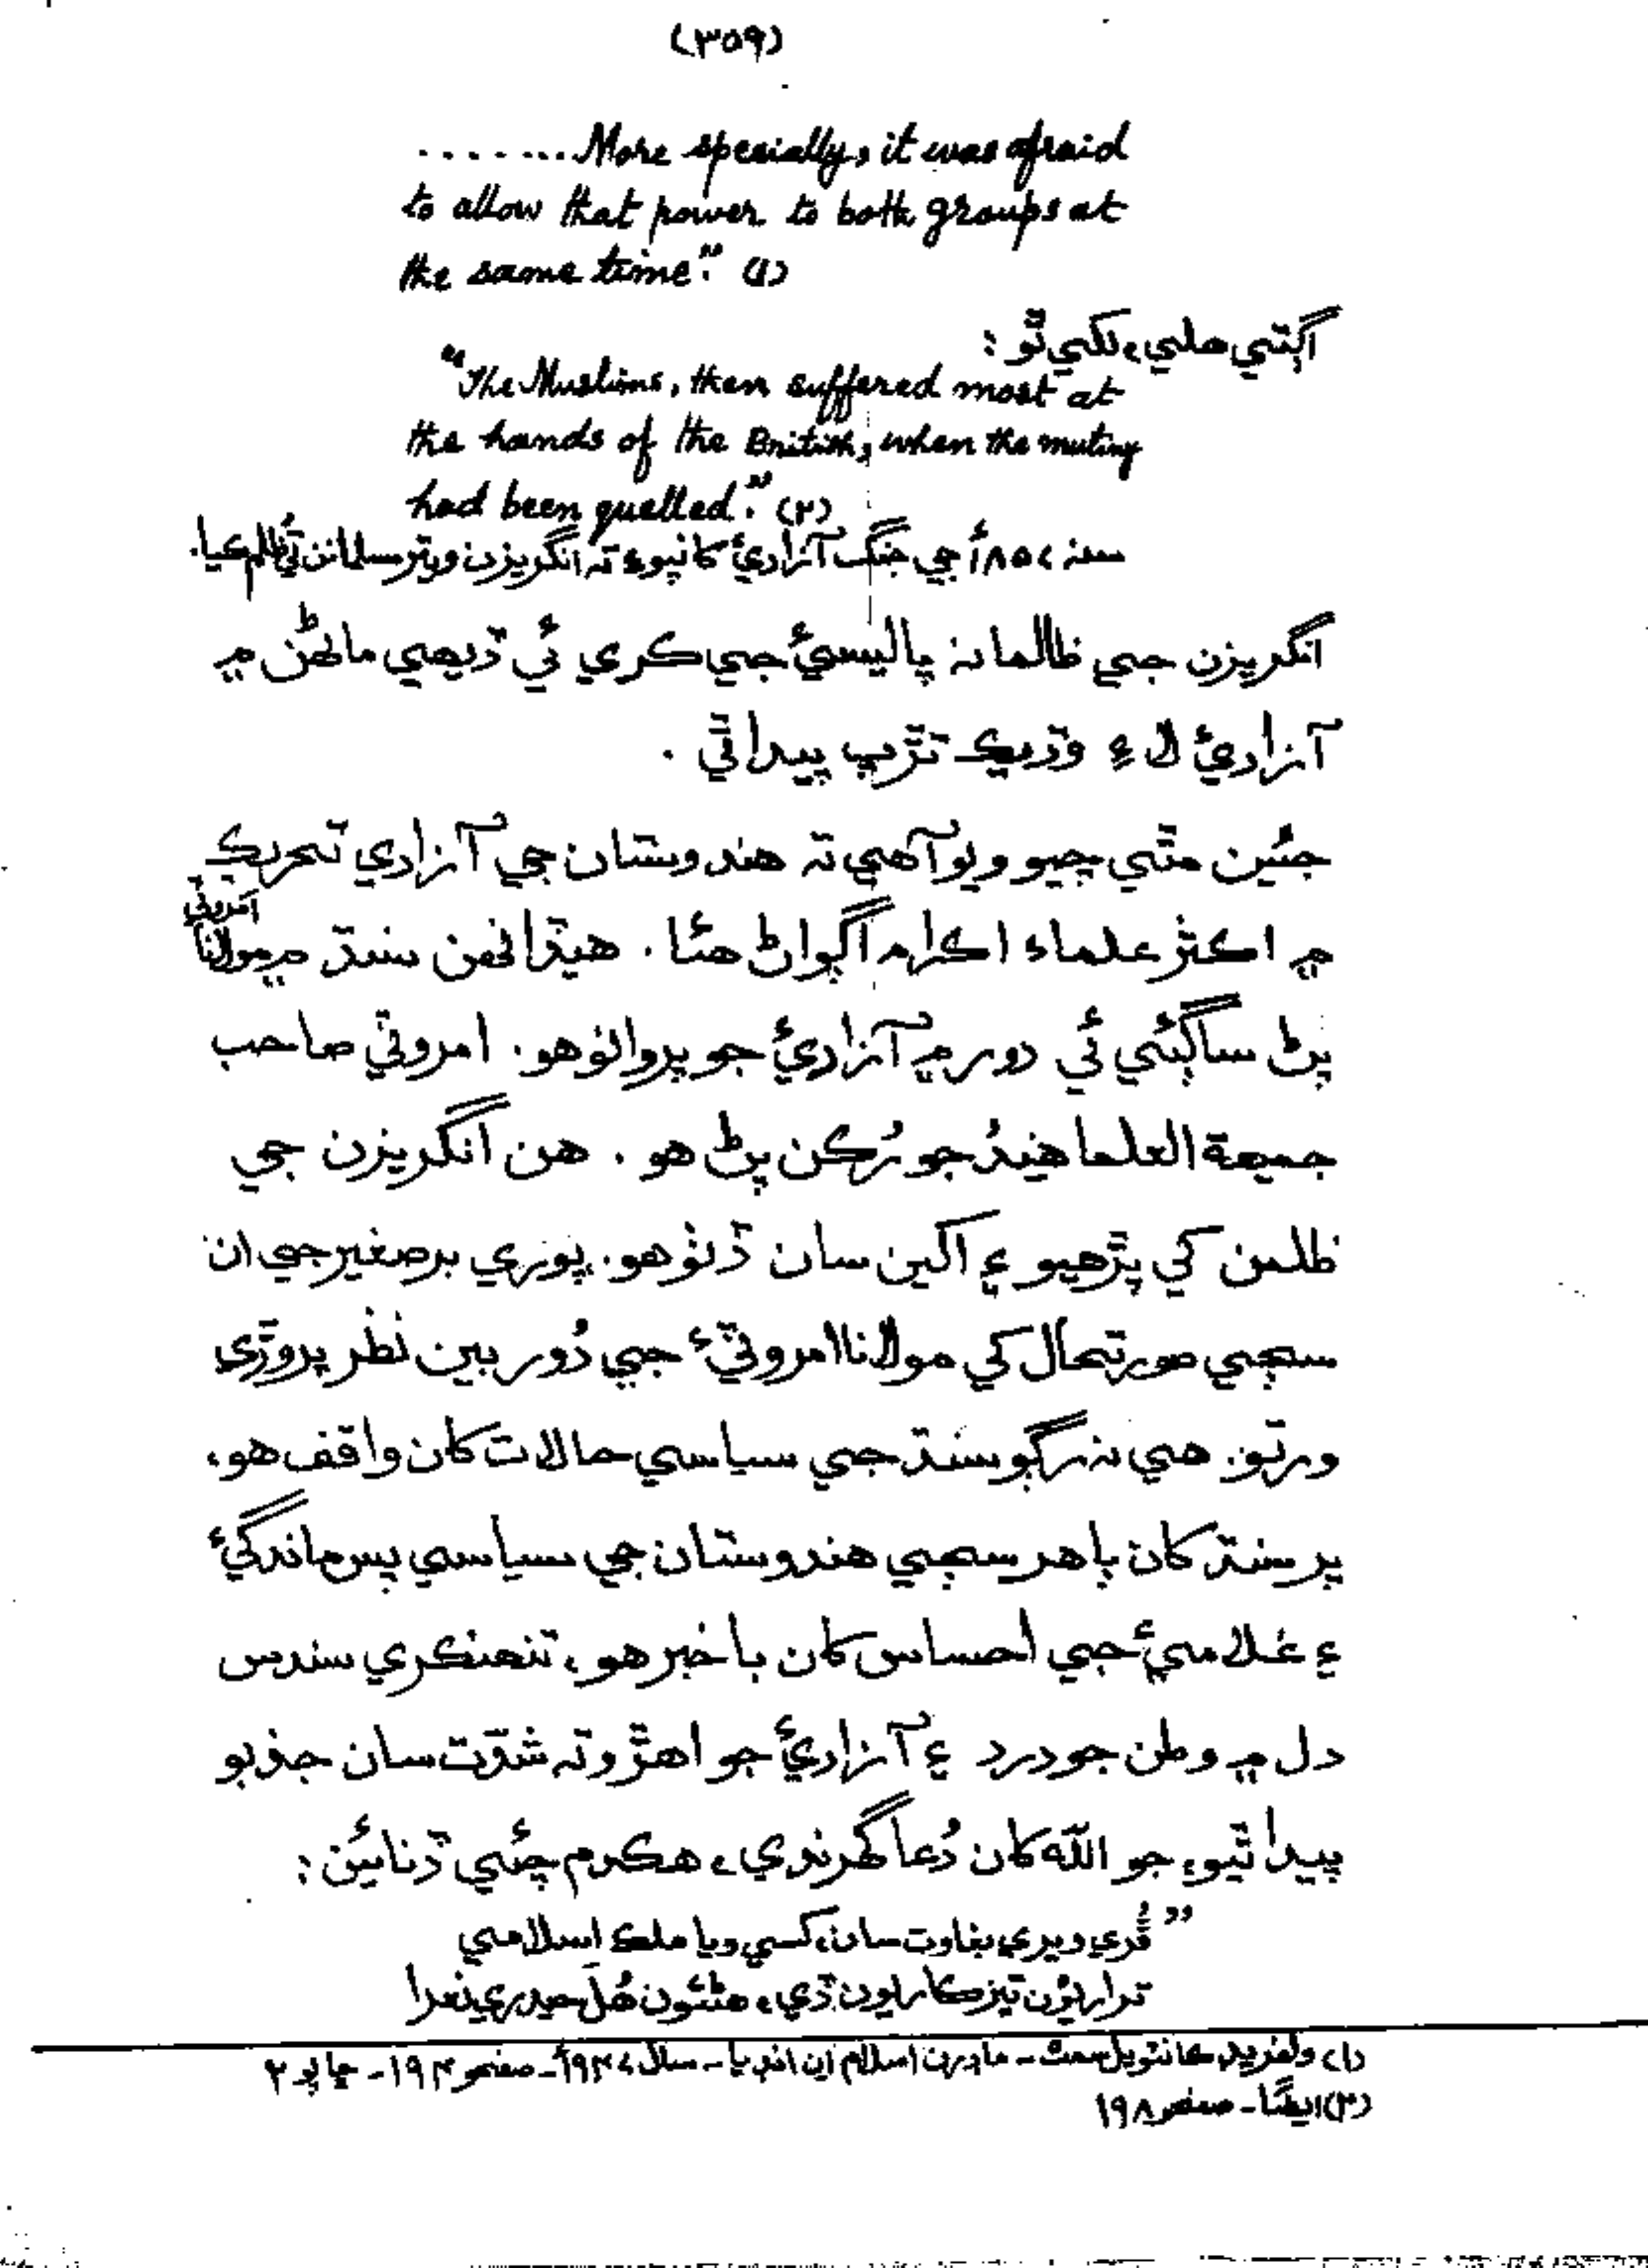 (٣٥٩)
........More specially, it was afraid
to allow that power to both groups at
the same time." (١)
اڳتي هلي، لکي ٿو :
"The Muslims, then suffered most at
the hands of the British, when the mutiny
had been quelled." (٢)
سنه ١٨٥٧ع جي جنگ آزاديءَ کانپوءِ ته انگريزن ويتر مسلمانن تي ظلم ڪيا.
انگريزن جي ظالمانه پاليسيءَ جي ڪري ئي ڏيهي ماڻهن ۾
آزاديءَ لاءِ وڌيڪ تڙپ پيدا ٿي .
جئين مٿي چيو ويو آهي ته هندوستان جي آزادي تحريڪ
۾ اڪثر علماء اڪرام اڳواڻ هئا. هيڏانهن سنڌ ۾ مولانا امروٽي
پڻ ساڳئي ئي دور ۾ آزاديءَ جو پروانو هو. امروٽي صاحب
جمعية العلما هند جو رُڪن پڻ هو . هن انگريزن جي
ظلمن کي پڙهيو ۽ اکين سان ڏٺو هو. پوري برصغير جي ان
سڄي صورتحال کي مولانا امروٽيءَ جي دُور بين نظر پروڙي
ورتو. هي نه رڳو سنڌ جي سياسي حالات کان واقف هو،
پر سنڌ کان ٻاهر سڄي هندوستان جي سياسي پس ماندگيءَ
۽ غلاميءَ جي احساس کان باخبر هو، تنهنڪري سندس
دل ۾ وطن جو درد ۽ آزاديءَ جو اهڙو ته شدّت سان جذبو
پيدا ٿيو، جو الله کان دُعا گهرندي، هڪدم چئي ڏنائين :
”ڦري ويري بغاوت سان، کسي ويا ملڪ اسلامي
تراريون تيز ڪاريون ڏي، هڻئون هُل حيدري نعرا
(١) ولفريڊ ڪانٽويل سمٿ - ماڊرن اسلام ان انڊيا - سال ١٩٤٧ع - صفحو ١٩٤ - ڇاپو ٢
(٢) ايضًا - صفحو ١٩٨